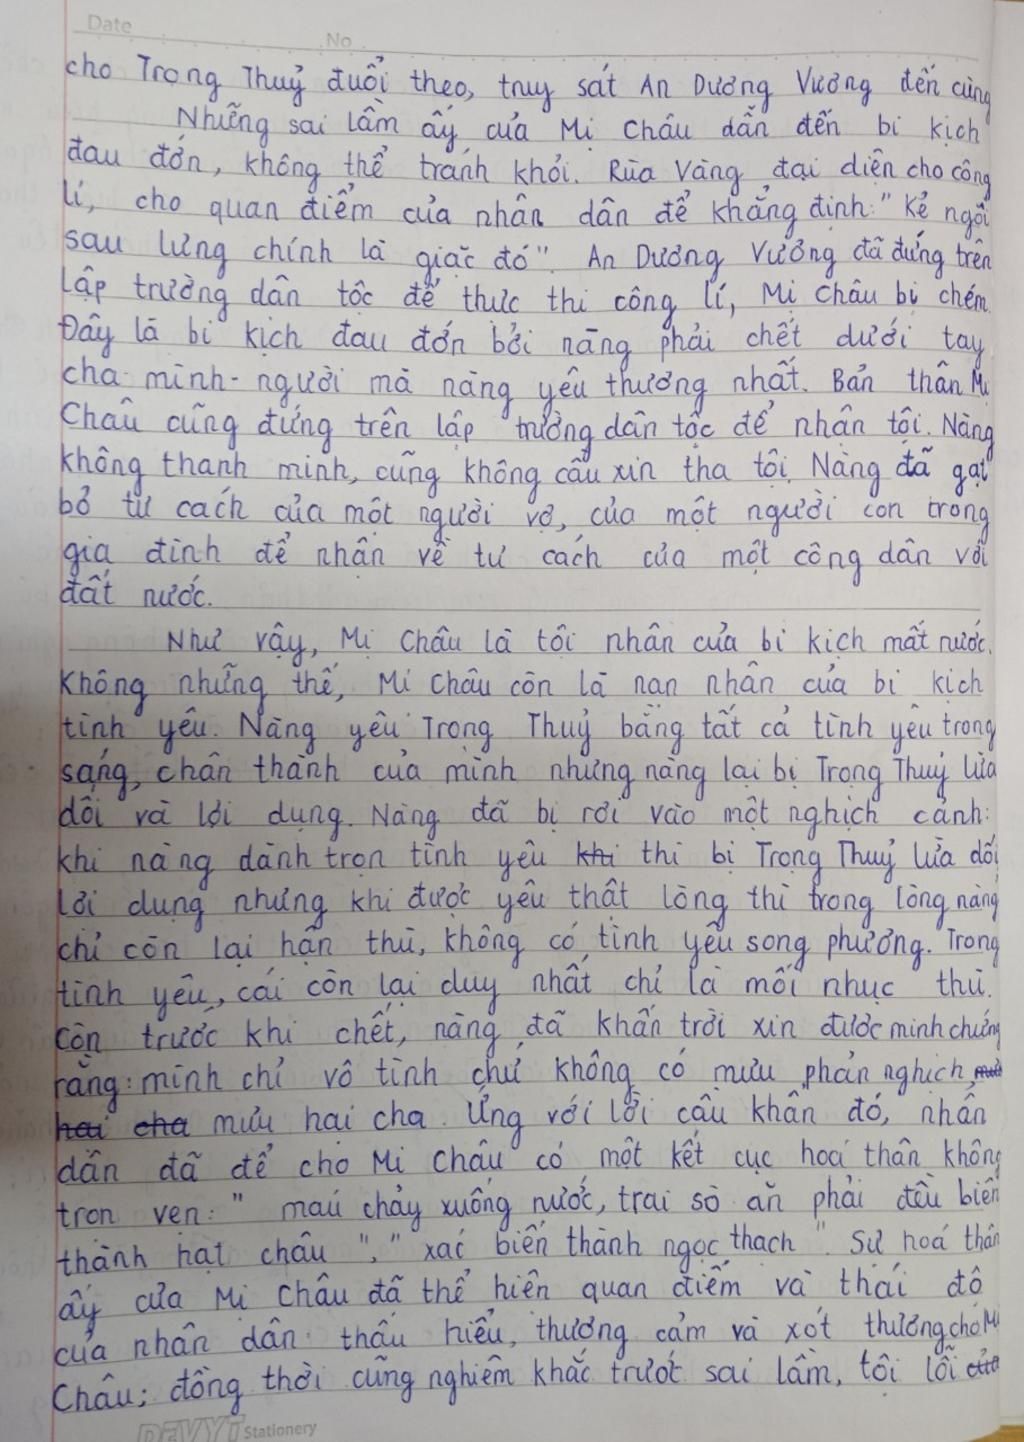 Date
No
cho Trọng Thuỷ đuổi theo, truy sát An Dương Vương đến cùng
Những sai lầm ấy của Mị Châu dẫn đến bi kịch
đau đớn, không thể tránh khỏi. Rùa Vàng đại diện cho công
lí, cho quan điểm của nhân dân để khẳng định: "Kẻ ngồi
sau lưng chính là giặc đó". An Dương Vương đã đứng trên
lập trường dân tộc để thực thi công lí, Mị Châu bị chém.
Đây là bi kịch đau đớn bởi nàng phải chết dưới tay
cha mình - người mà nàng yêu thương nhất. Bản thân Mị
Châu cũng đứng trên lập trường dân tộc để nhận tội. Nàng
không thanh minh, cũng không cầu xin tha tội. Nàng đã gạt
bỏ tư cách của một người vợ, của một người con trong
gia đình để nhận về tư cách của một công dân với
đất nước.
Như vậy, Mị Châu là tội nhân của bi kịch mất nước.
Không những thế, Mị Châu còn là nạn nhân của bi kịch
tình yêu. Nàng yêu Trọng Thuỷ bằng tất cả tình yêu trong
sáng, chân thành của mình nhưng nàng lại bị Trọng Thuỷ lừa
dối và lợi dụng. Nàng đã bị rơi vào một nghịch cảnh:
khi nàng dành trọn tình yêu khi thì bị Trọng Thuỷ lừa dối,
lợi dụng nhưng khi được yêu thật lòng thì trong lòng nàng
chỉ còn lại hận thù, không có tình yêu song phương. Trong
tình yêu, cái còn lại duy nhất chỉ là mối nhục thù.
Còn trước khi chết, nàng đã khấn trời xin được minh chứng
rằng: mình chỉ vô tình chứ không có mưu phản nghịch, mưu
hại cha mưu hại cha. Ứng với lời cầu khẩn đó, nhân
dân đã để cho Mị Châu có một kết cục hoá thân không
trọn vẹn: "máu chảy xuống nước, trai sò ăn phải đều biến
thành hạt châu", "xác biến thành ngọc thạch". Sự hoá thân
ấy của Mị Châu đã thể hiện quan điểm và thái độ
của nhân dân: thấu hiểu, thương cảm và xót thương cho Mị
Châu; đồng thời cũng nghiêm khắc trước sai lầm, tội lỗi của
DEVYT Stationery